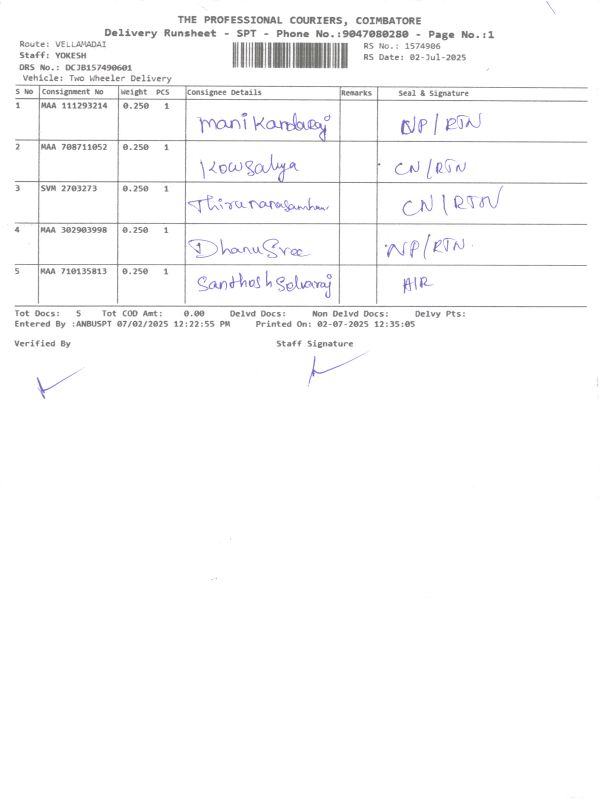 THE PROFESSIONAL COURIERS, COIMBATORE
Delivery Runsheet - SPT - Phone No.:9047080280 - Page No.:1
Route: VELLAMADAI RS No.: 1574906
Staff: YOKESH RS Date: 02-Jul-2025
DRS No.: DCJB157490601
Vehicle: Two Wheeler Delivery
S No Consignment No Weight PCS Consignee Details Remarks Seal & Signature
1 MAA 111293214 0.250 1 Manikandaraj NP/RTN
2 MAA 708711052 0.250 1 Kowsalya CN/RTN
3 SVM 2703273 0.250 1 CN/RTN
4 MAA 302903998 0.250 1 DhanuSree NP/RTN
5 MAA 710135813 0.250 1 Santhosh Selvaraj AIR
Tot Docs: 5 Tot COD Amt: 0.00 Delvd Docs: Non Delvd Docs: Delvy Pts:
Entered By :ANBUSPT 07/02/2025 12:22:55 PM Printed On: 02-07-2025 12:35:05
Verified By Staff Signature